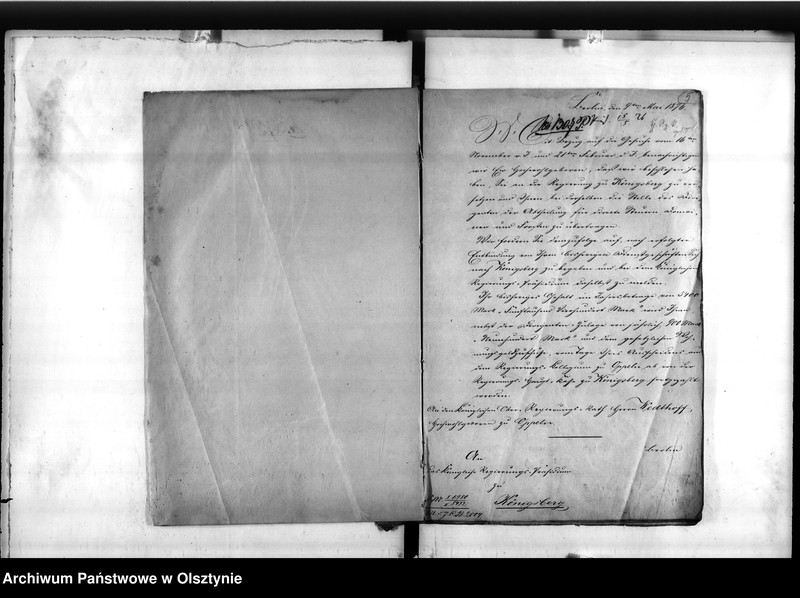 Berlin, den 9ten Mai 1876
In Bezug auf die Gesuche vom 16ten
November v. J. und 21ten Februar d. J. benachrichtigen
wir Ew. Hochwohlgeboren, daß wir beschlossen ha-
ben, Sie an die Regierung zu Königsberg zu ver-
setzen und Ihnen bei derselben die Stelle des Diri-
genten der Abtheilung für direkte Steuern, Domai-
nen und Forsten zu übertragen.
Wir fordern Sie demzufolge auf, nach erfolgter
Entbindung von Ihren bisherigen Dienstgeschäften sich
nach Königsberg zu begeben und bei dem Königlichen
Regierungs-Präsidium daselbst zu melden.
Ihr bisheriges Gehalt im Jahresbetrage von 5400
Mark "Fünftausend Vierhundert Mark" wird Ihnen
nebst der Dirigenten-Zulage von jährlich 900 Mark
"Neunhundert Mark" und dem gesetzlichen Woh-
nungsgeldzuschusse, vom Tage Ihres Ausscheidens aus
dem Regierungs-Kollegium zu Oppeln ab von der
Regierungs-Haupt-Kasse zu Königsberg fortgezahlt
werden.
An den Königlichen Ober-Regierungs-Rath Herrn Wedthoff,
Hochwohlgeboren zu Oppeln.
Berlin
An
das Königliche Regierungs-Präsidium
zu
Königsberg
Archiwum Państwowe w Olsztynie